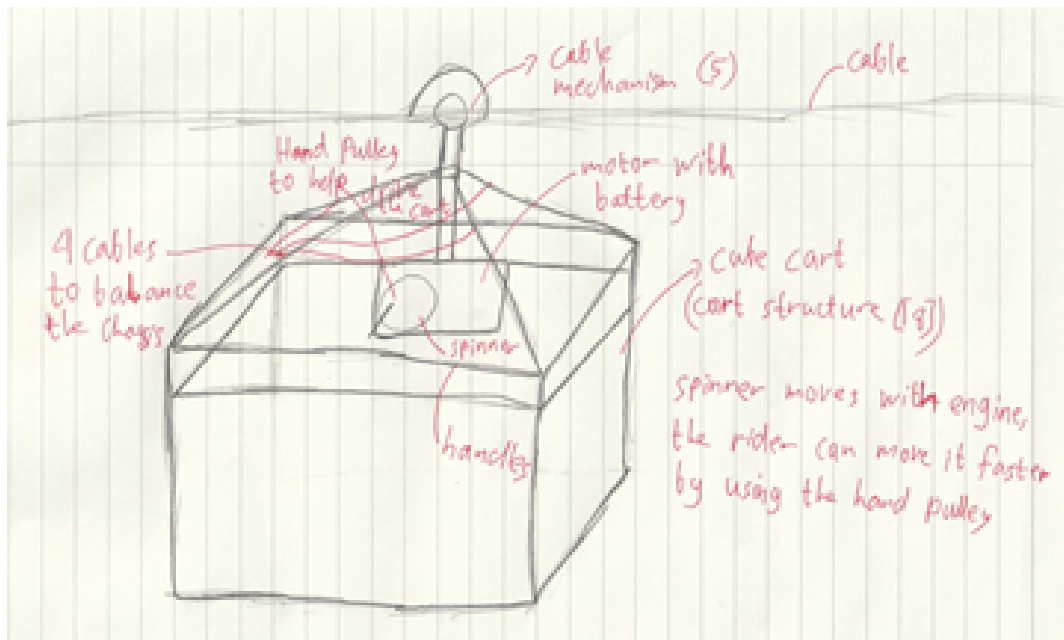 cable
mechanism (5)
cable
Hand Pulley
to help
motor with
battery
4 cables
to balance
the
cube cart
(cart structure
spinner
handles
spinner moves with engine,
the rider can move it faster
by using the hand pulley